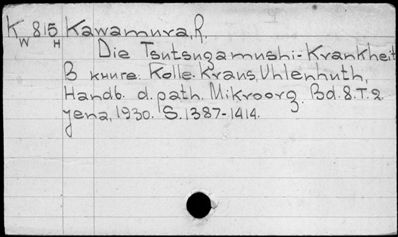 K 815 Kawamura, R.
W H
Die Tsutsugamushi-Krankheit
В книге: Kolle. Kraus, Uhlenhuth,
Handb. d. path. Mikroorg. Bd. 8. T. 2.
Jena, 1930. S. 1387-1414.